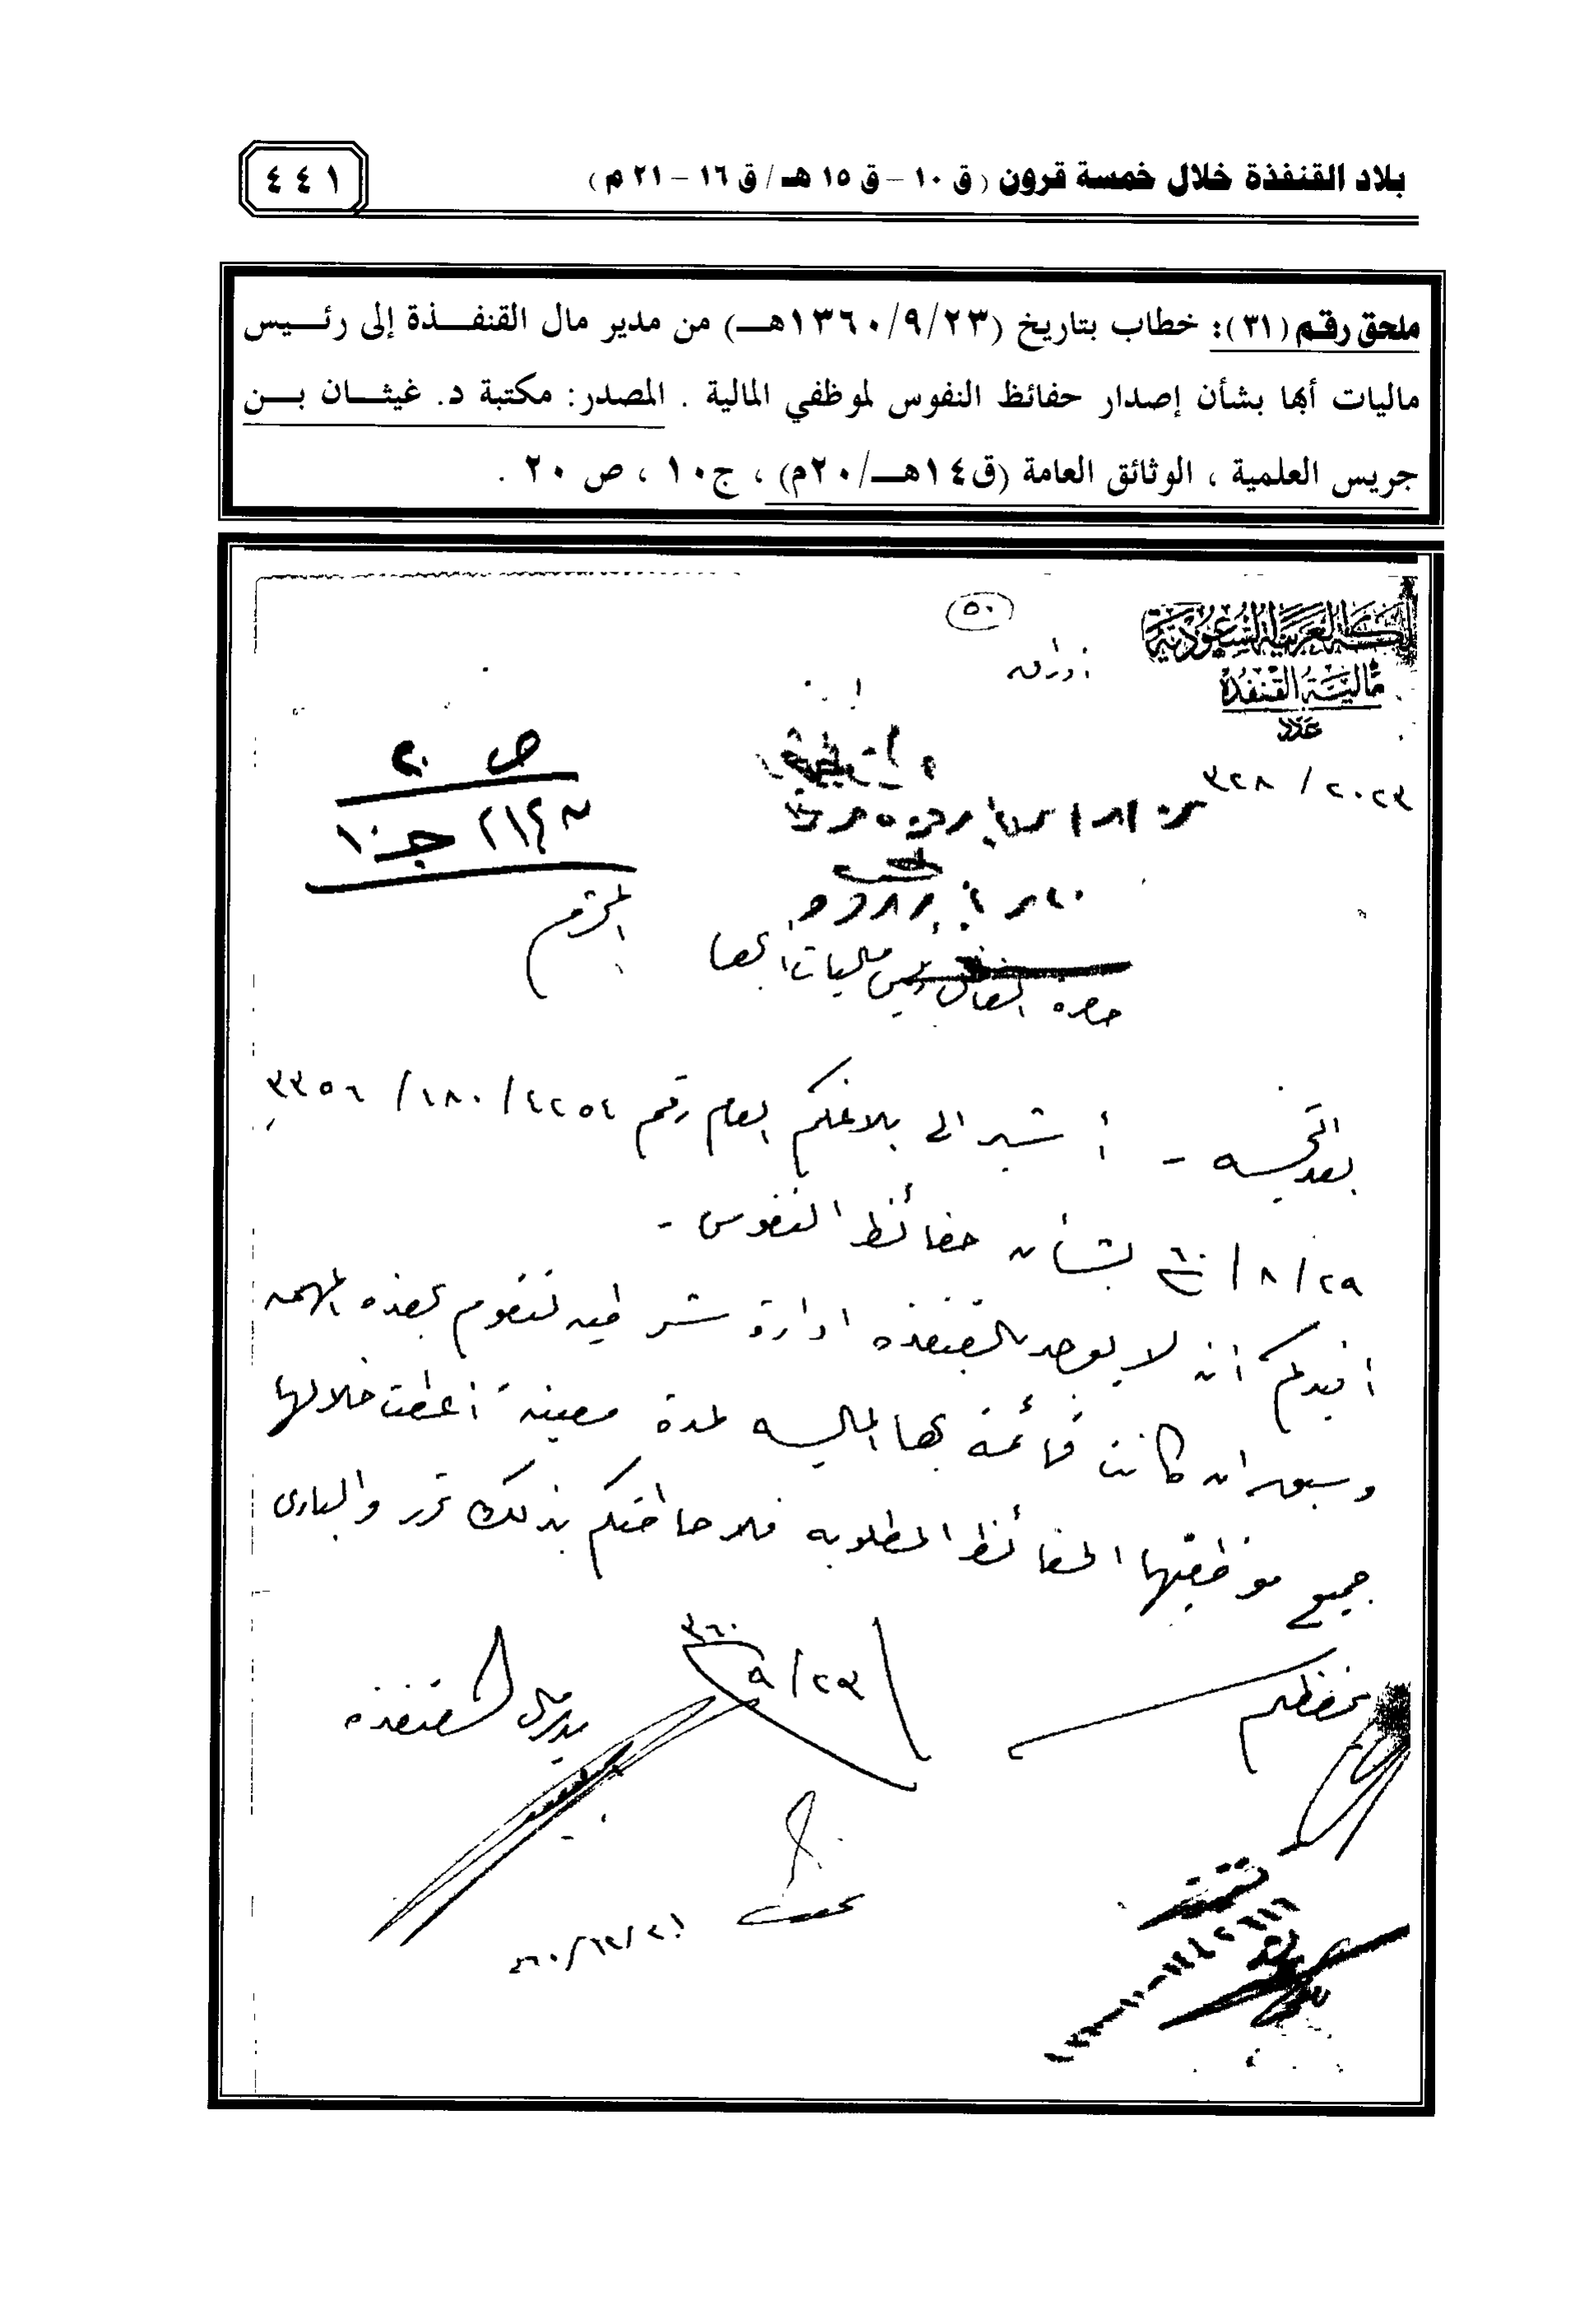 بلاد القنفذة خلال خمسة قرون (ق ١٠ – ق ١٥ هـ / ق ١٦ – ٢١ م)
٤٤١
ملحق رقم (٣١): خطاب بتاريخ (١٣٦٠/٩/٢٣هـ) من مدير مال القنفذة إلى رئيس
ماليات أبها بشأن إصدار حفائظ النفوس لموظفي المالية . المصدر: مكتبة د. غيثان بن
جريس العلمية ، الوثائق العامة (ق١٤هـ/٢٠م) ، ج١٠ ، ص ٢٠ .
٥٠
المملكة العربية السعودية
مالية القنفذة
عدد
٢٠٢٣ / ٣٢٨
ص ٢٠
ج ١٠
حضرة الفاضل رئيس ماليات أبها المحترم
بعد التحية – أشير الى بلاغكم العام رقم ٤٢٥٤ / ١٨٠ / ٣٣٥٦
٢٩ / ٨ / ٦٠ بشأن حفائظ النفوس –
أفيدكم ان لا يوجد بالقنفذه ادارة شرطيه لتقوم بهذه المهمه
وسبق ان كانت قائمة بها الماليه لمدة معينة أعطت خلالها
جميع موظفيها الحفائظ المطلوبه فلاحاطتكم بذلك تحرر والبارى
يحفظكم
٢٣ / ٩ / ٣٦٠
مدير مال القنفذه